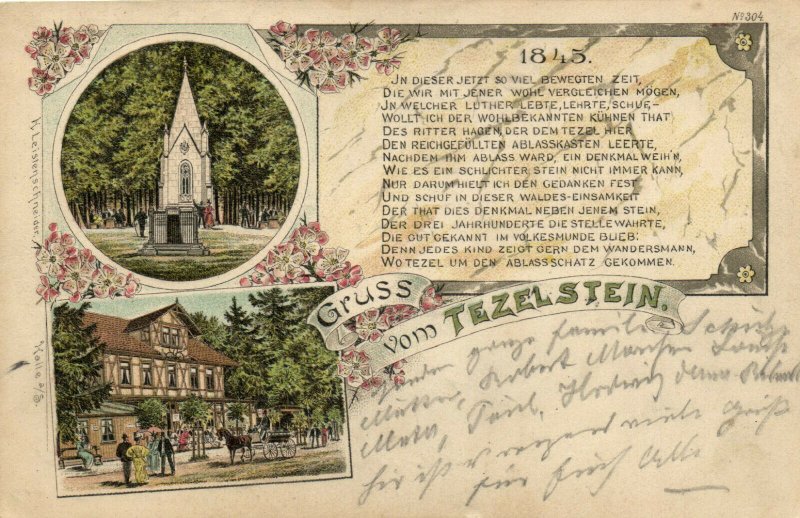 No 304
1845.
JN DIESER JETZT SO VIEL BEWEGTEN ZEIT,
DIE WIR MIT JENER WOHL VERGLEICHEN MÖGEN,
JN WELCHER LUTHER LEBTE, LEHRTE, SCHUF,-
WOLLT ICH DER WOHLBEKANNTEN KÜHNEN THAT
DES RITTER HAGEN, DER DEM TEZEL HIER
DEN REICHGEFÜLLTEN ABLASSKASTEN LEERTE,
NACHDEM IHM ABLASS WARD, EIN DENKMAL WEIH'N,
WIE ES EIN SCHLICHTER STEIN NICHT IMMER KANN,
NUR DARUM HIELT ICH DEN GEDANKEN FEST
UND SCHUF IN DIESER WALDES-EINSAMKEIT
DER THAT DIES DENKMAL NEBEN JENEM STEIN,
DER DREI JAHRHUNDERTE DIE STELLE WAHRTE,
DIE GUT GEKANNT IM VOLKESMUNDE BLIEB:
DENN JEDES KIND ZEIGT GERN DEM WANDERSMANN,
WO TEZEL UM DEN ABLASSSCHATZ GEKOMMEN.
H. Leistenschneider.
Halle a/S.
GRUSS
VOM TEZELSTEIN.
ganze Familie
Mutter, Robert
Paul, Hedwig
hier ist viele Grüße
für